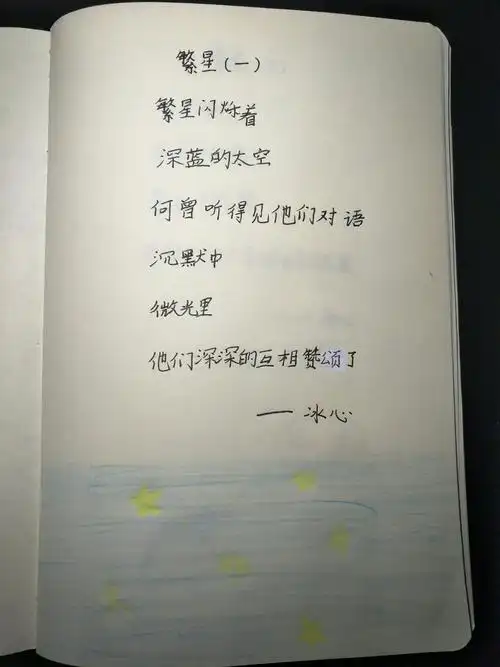 繁星(一)
繁星闪烁着
深蓝的太空
何曾听得见他们对语
沉默中
微光里
他们深深的互相赞颂了
—— 冰心